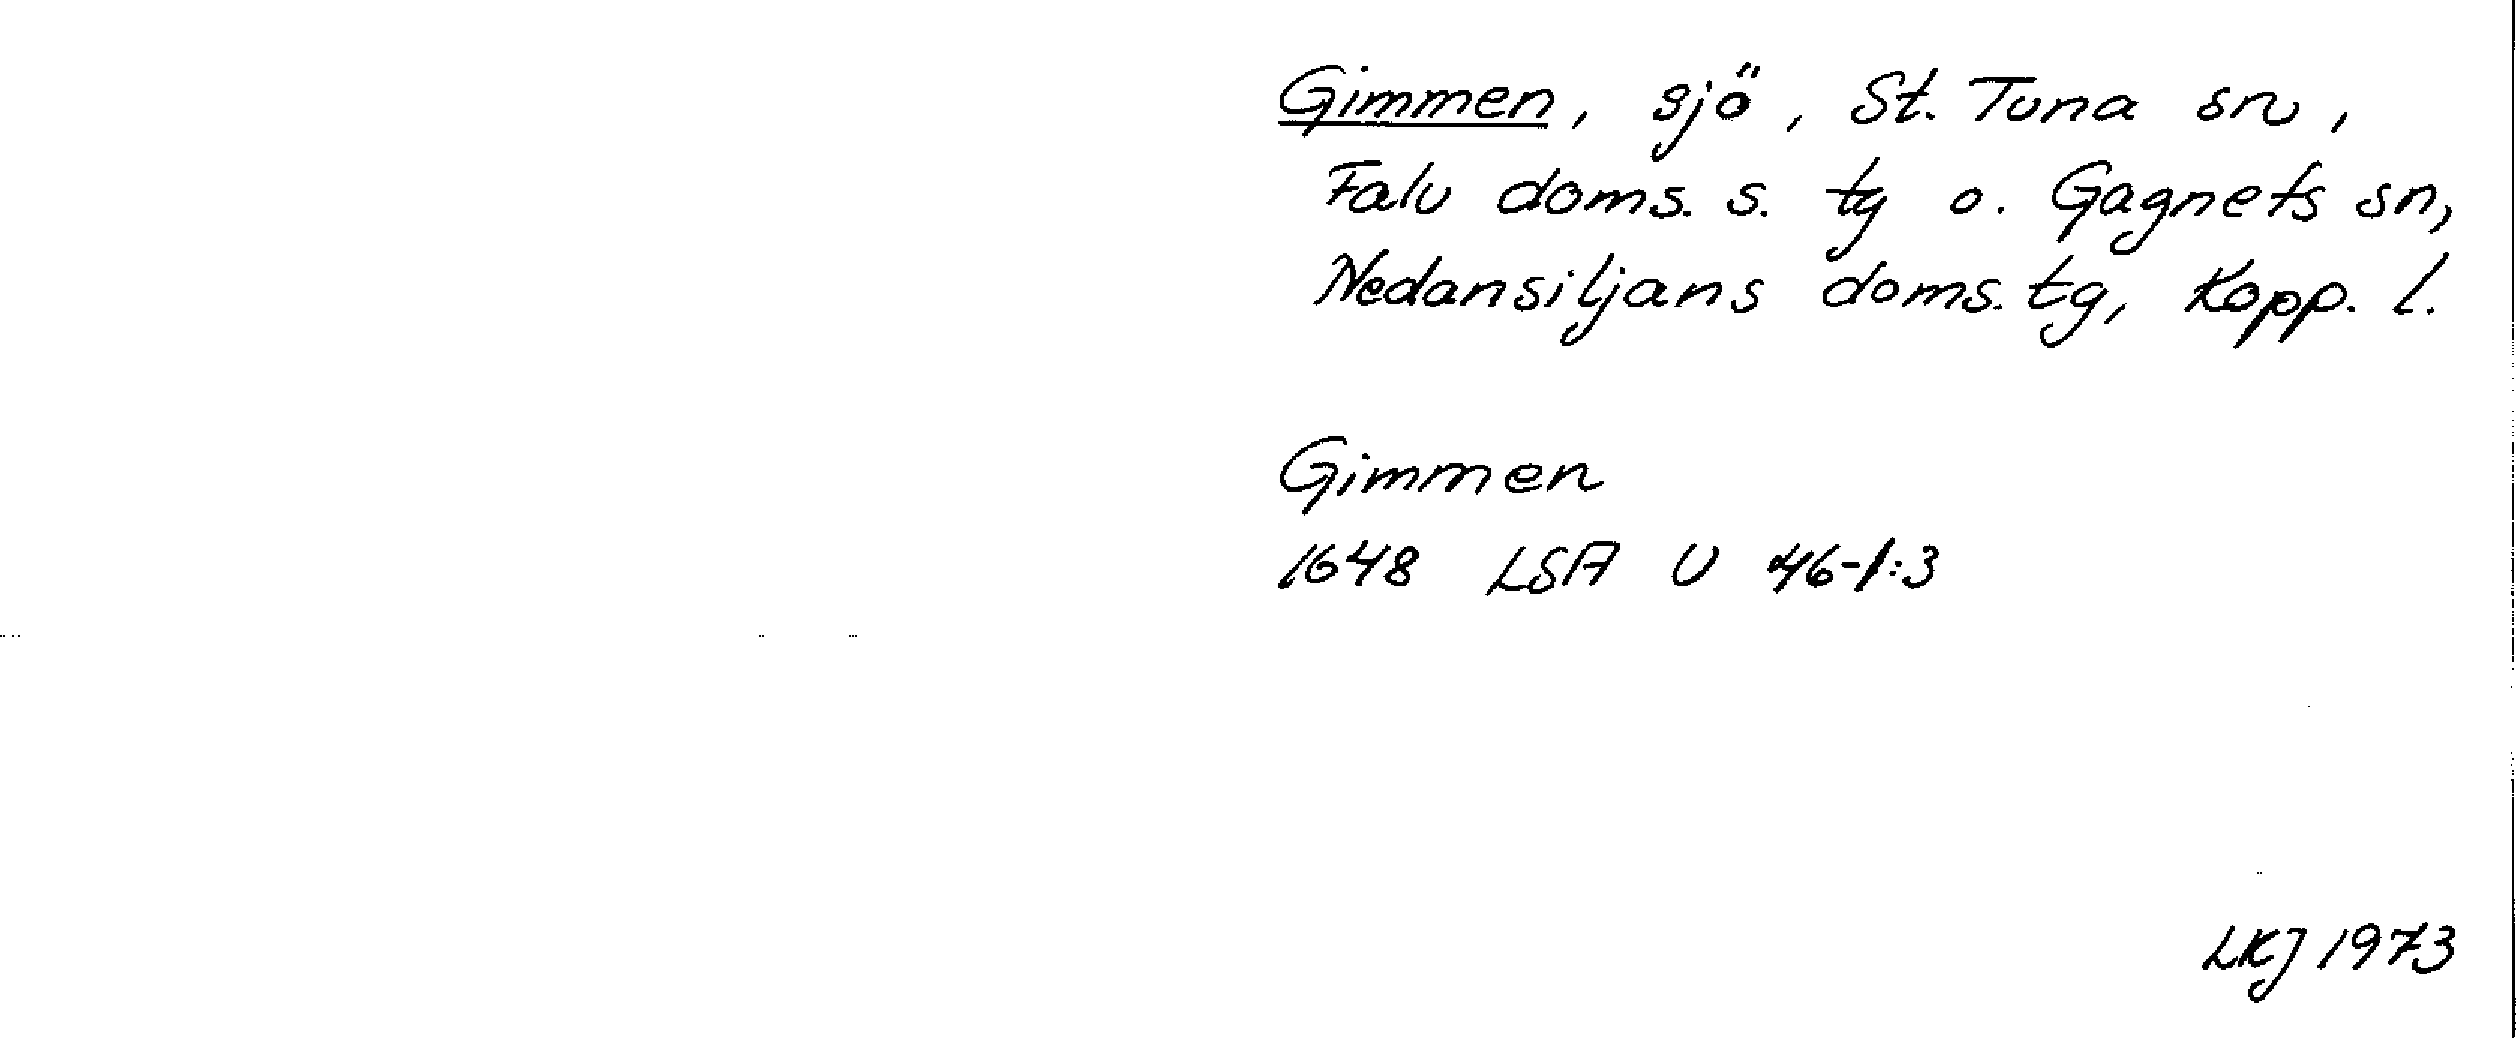 Gimmen, sjö, St. Tuna sn,
Falu doms. s. tg o. Gagnefs sn,
Nedansiljans doms. tg, Kopp. l.
Gimmen
1648 LSA U 46-1:3
LKJ 1973